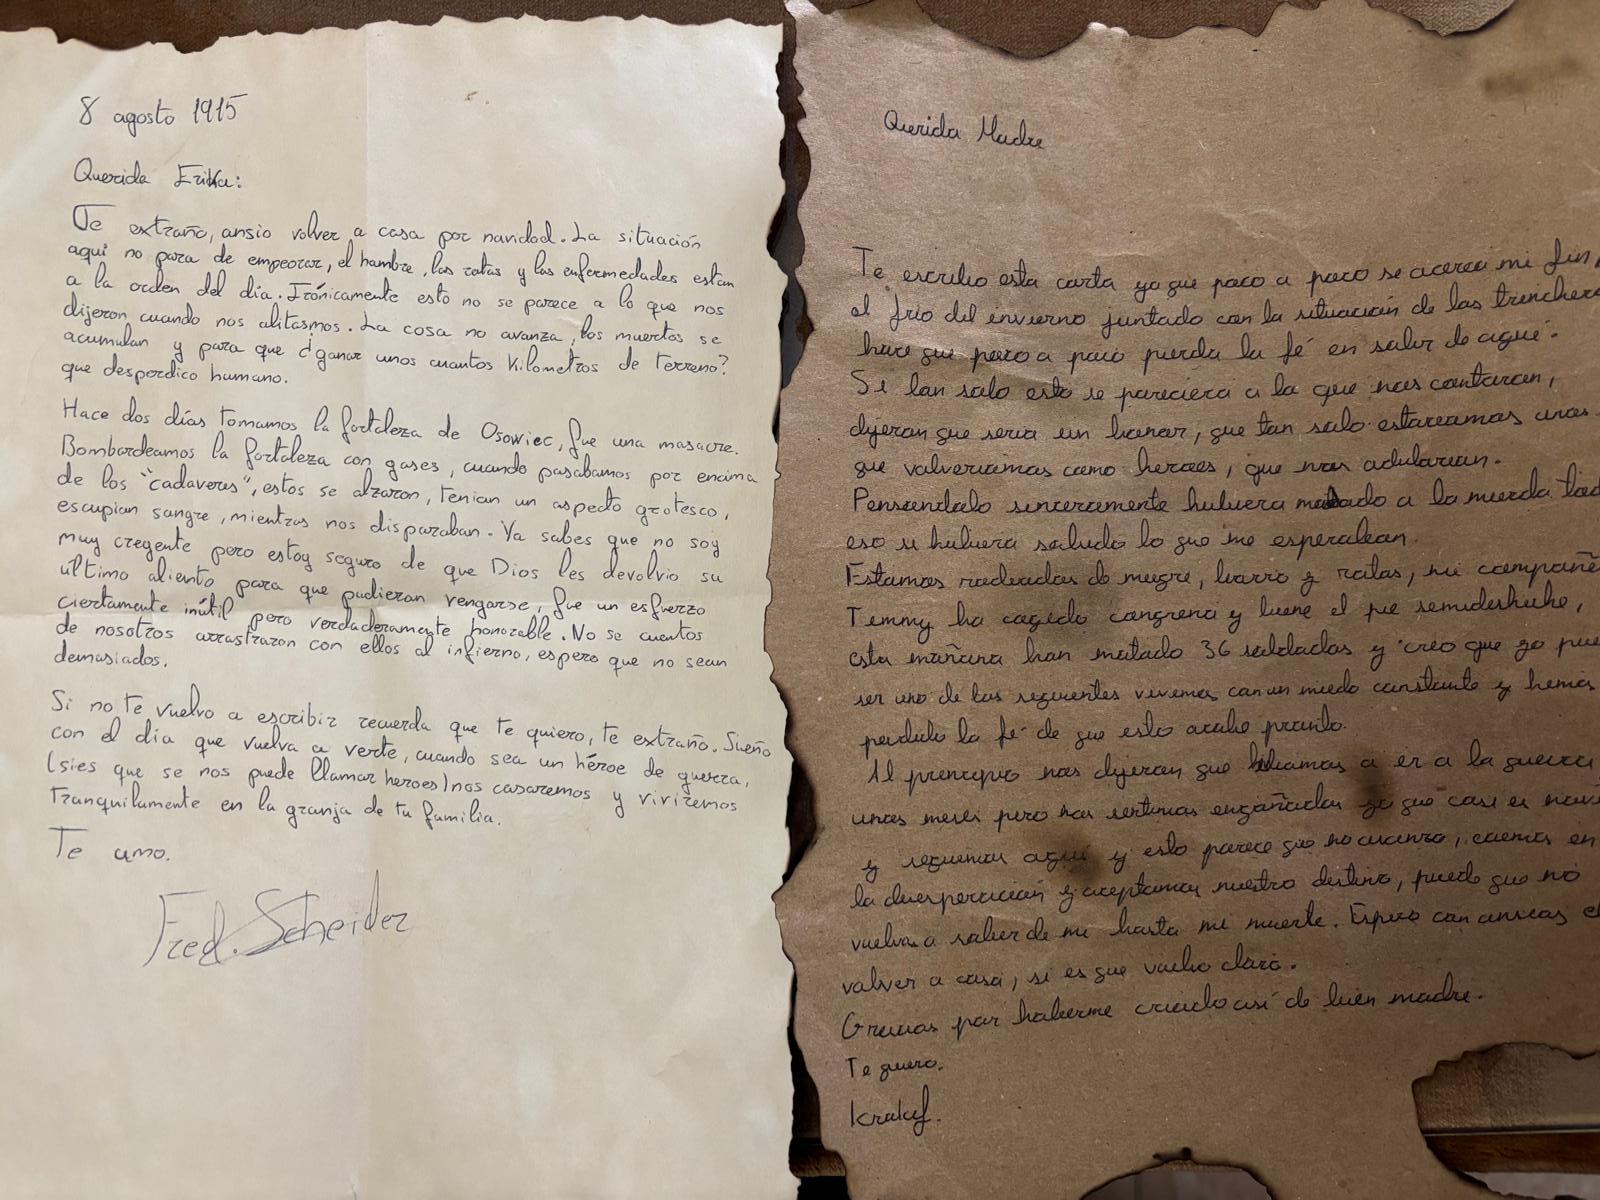 8 agosto 1915
Querida Erika:
Te extraño, ansio volver a casa por navidad. La situación
aquí no para de empeorar, el hambre, las ratas y las enfermedades estan
a la orden del día. Irónicamente esto no se parece a lo que nos
dijeron cuando nos alitasmos. La cosa no avanza, los muertos se
acumulan y para que ¿ganar unos cuantos kilometros de terreno?
que desperdico humano.
Hace dos días tomamos la fortaleza de Osowiec, fue una masacre.
Bombardeamos la fortaleza con gases, cuando pasabamos por encima
de los "cadaveres", estos se alzaron, tenian un aspecto grotesco,
escupian sangre, mientras nos disparaban. Ya sabes que no soy
muy creyente pero estoy seguro de que Dios les devolvio su
ultimo aliento para que pudieran vengarse, fue un esfuerzo
ciertamente inútil pero verdaderamente honorable. No se cuentos
de nosotros arrastraron con ellos al infierno, espero que no sean
demasiados.
Si no te vuelvo a escribir recuerda que te quiero, te extraño. Sueño
con el día que vuelva a verte, cuando sea un héroe de guerra,
(si es que se nos puede llamar heroes) nos casaremos y viviremos
tranquilamente en la granja de tu familia.
Te amo.
Fred. Scheider
Querida Madre
Te escribo esta carta ya que poco a poco se acerca mi fin,
el frio del invierno juntado con la situación de las trinchera
hace que poco a poco pierda la fé en salir de aqui.
Si tan solo esto se pareciera a lo que nos contaron,
dijeron que seria un honor, que tan solo estareamos unos
que volveriamos como heroes, que nos adularian.
Pensandolo sinceramente hubiera mandado a la mierda tod
eso si hubiera sabido lo que me esperaban.
Estamos rodeados de mugre, barro y ratas, mi compañe
Temmy ha cogido congrena y tiene el pie semideshecho,
esta mañana han matado 36 soldados y creo que yo pue
ser uno de los siguientes vivemos con un miedo constante y hemos
perdido la fé de que esto acabe pronto.
Al principio nos dijeron que ibamos a ir a la guerra
unos meses pero nos sentimos engañados ya que casi es navi
y seguimos aqui y esto parece que no avanza, caemos en
la desesperación y aceptamos nuestro destino, puede que no
vuelvas a saber de mi hasta mi muerte. Espero con ansias el
volver a casa, si es que vuelvo claro.
Gracias por haberme criado asi de bien madre.
Te quiero.